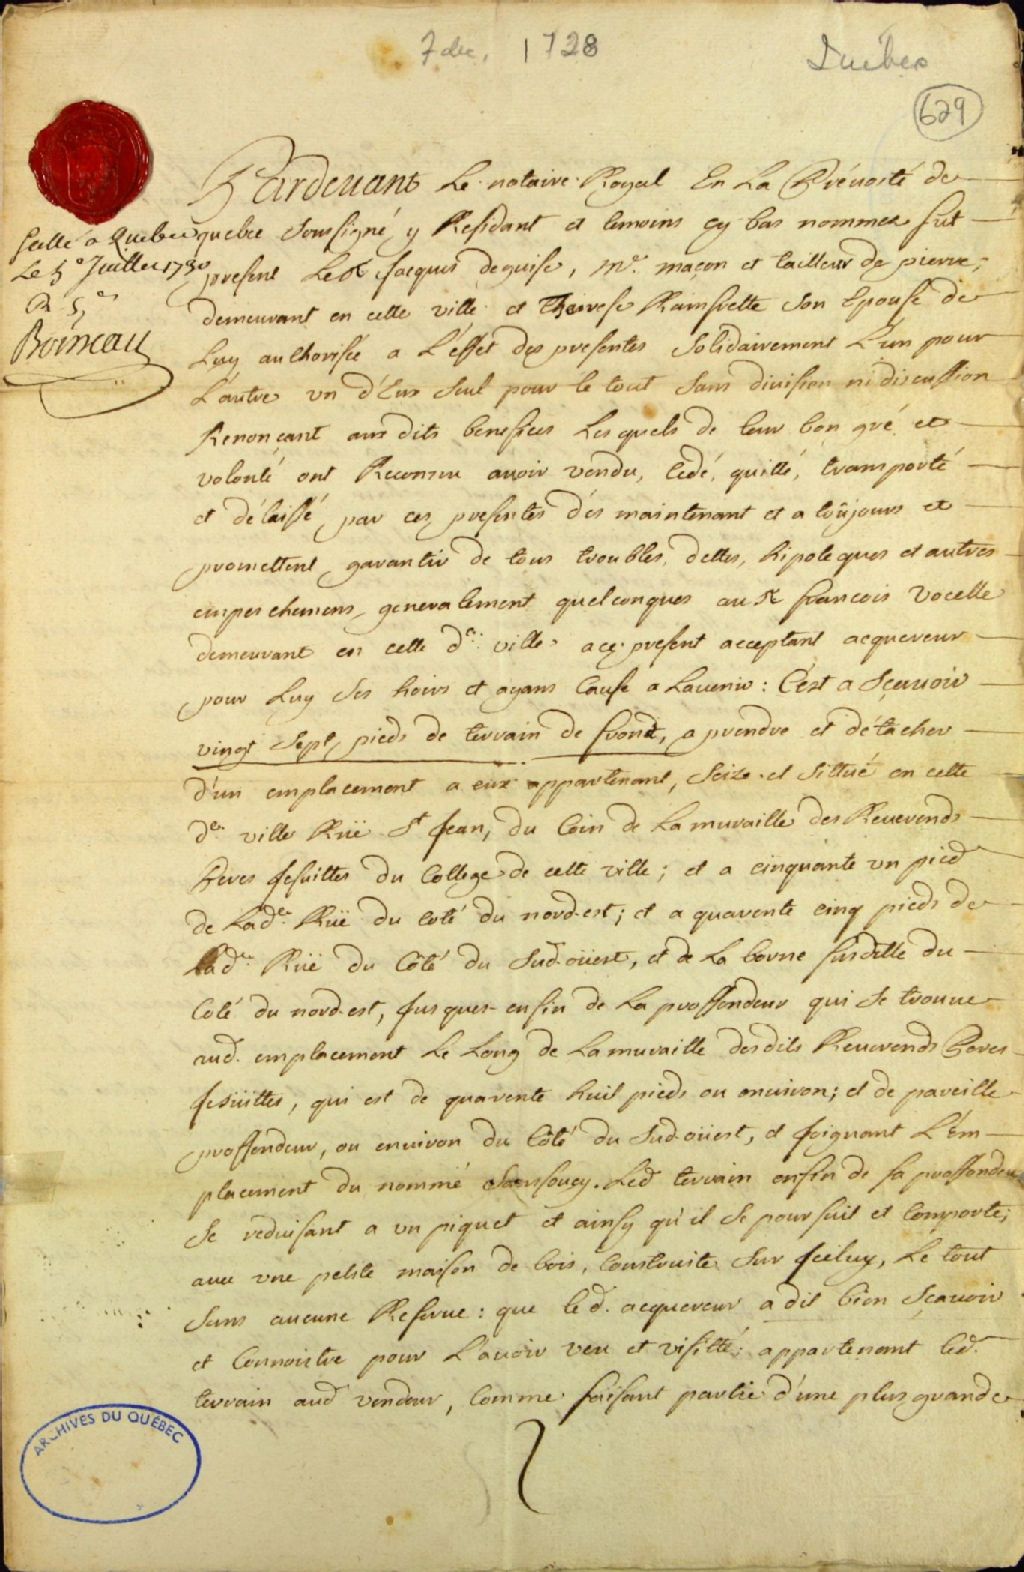 7 dec. 1728
Québec
629
Scellé a Quebec
Le 5e Juillet 1730
R 5s
Boisseau
Pardevant Le notaire Royal En La Prévosté de
quebec Soussigné y Residant et temoins cy bas nommez fut
present Le Sr Jacques deguise, Me. maçon et tailleur de pierre,
demeurant en cette ville et Therese Rainfrette Son Epouse de
Luy authorisée a L'effet des presentes Solidairement L'un pour
L'autre un d'Eux Seul pour le tout Sans division ni discussion
Renonçant aux dits benefices Lesquels de leur bon gré et
volonté ont Reconnu avoir vendu, cedé, quitté, transporté
et délaissé, par ces presentes dés maintenant et a toûjours et
promettent garantir de tous troubles, dettes, hipoteques et autres
empeschemens generalement quelconques au Sr francois vocelle
demeurant en cette de. ville a ce present acceptant acquereur
pour Luy Ses hoirs et ayans Cause a L'avenir : C'est a Sçavoir
vingt Sept pieds de terrain de front, a prendre et détacher
d'un emplacement a eux appartenant, Seize et Sittué en cette
de. ville Rüe St Jean, du Coin de La muraille des Reverends
Peres Jesuittes du College de cette ville ; et a cinquante un pied
de Lade. Rüe du Coté du nord-est ; et a quarente cinq pieds de
Lade. Rüe du Côté du Sud-oüest, et de La borne Susditte du
Coté du nord-est, Jusques enfin de La proffondeur qui Se trouve
aud. emplacement Le Long de La muraille desdits Reverends Peres
Jesuittes, qui est de quarente huit pieds ou environ ; et de pareille
proffondeur, ou environ du Côté du Sud-oüest, et Joignant L'em-
placement du nommé Sansoucy. Led terrain enfin de Sa proffondeur
Se reduisant a un piquet et ainsy qu'il Se poursuit et Comporte ;
avec une petite maison de bois, Construite Sur Jceluy, Le tout
Sans aucune Reserve : que led. acquereur a dit bien Sçavoir
et Connoistre pour L'avoir veu et visitté ; appartenant led.
terrain aud vendeur, Comme faisant partie d'une plus grande
ARCHIVES DU QUÉBEC